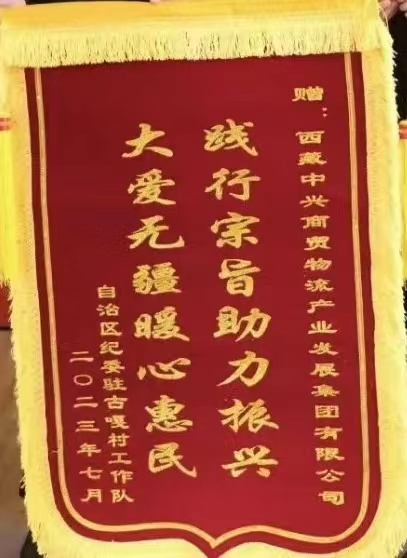 赠：西藏中兴商贸物流产业发展集团有限公司
践行宗旨助力振兴
大爱无疆暖心惠民
自治区纪委驻古嘎村工作队
二〇二三年七月